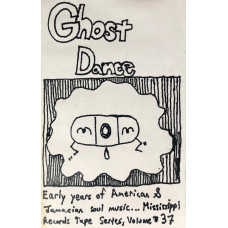 Ghost
Dance
Early years of American &
Jamaican soul music... Mississippi
Records Tape Series, Volume #37